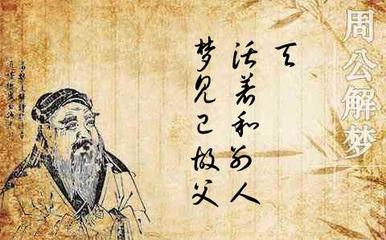 周公解梦
梦见已故父
活着和别人
天